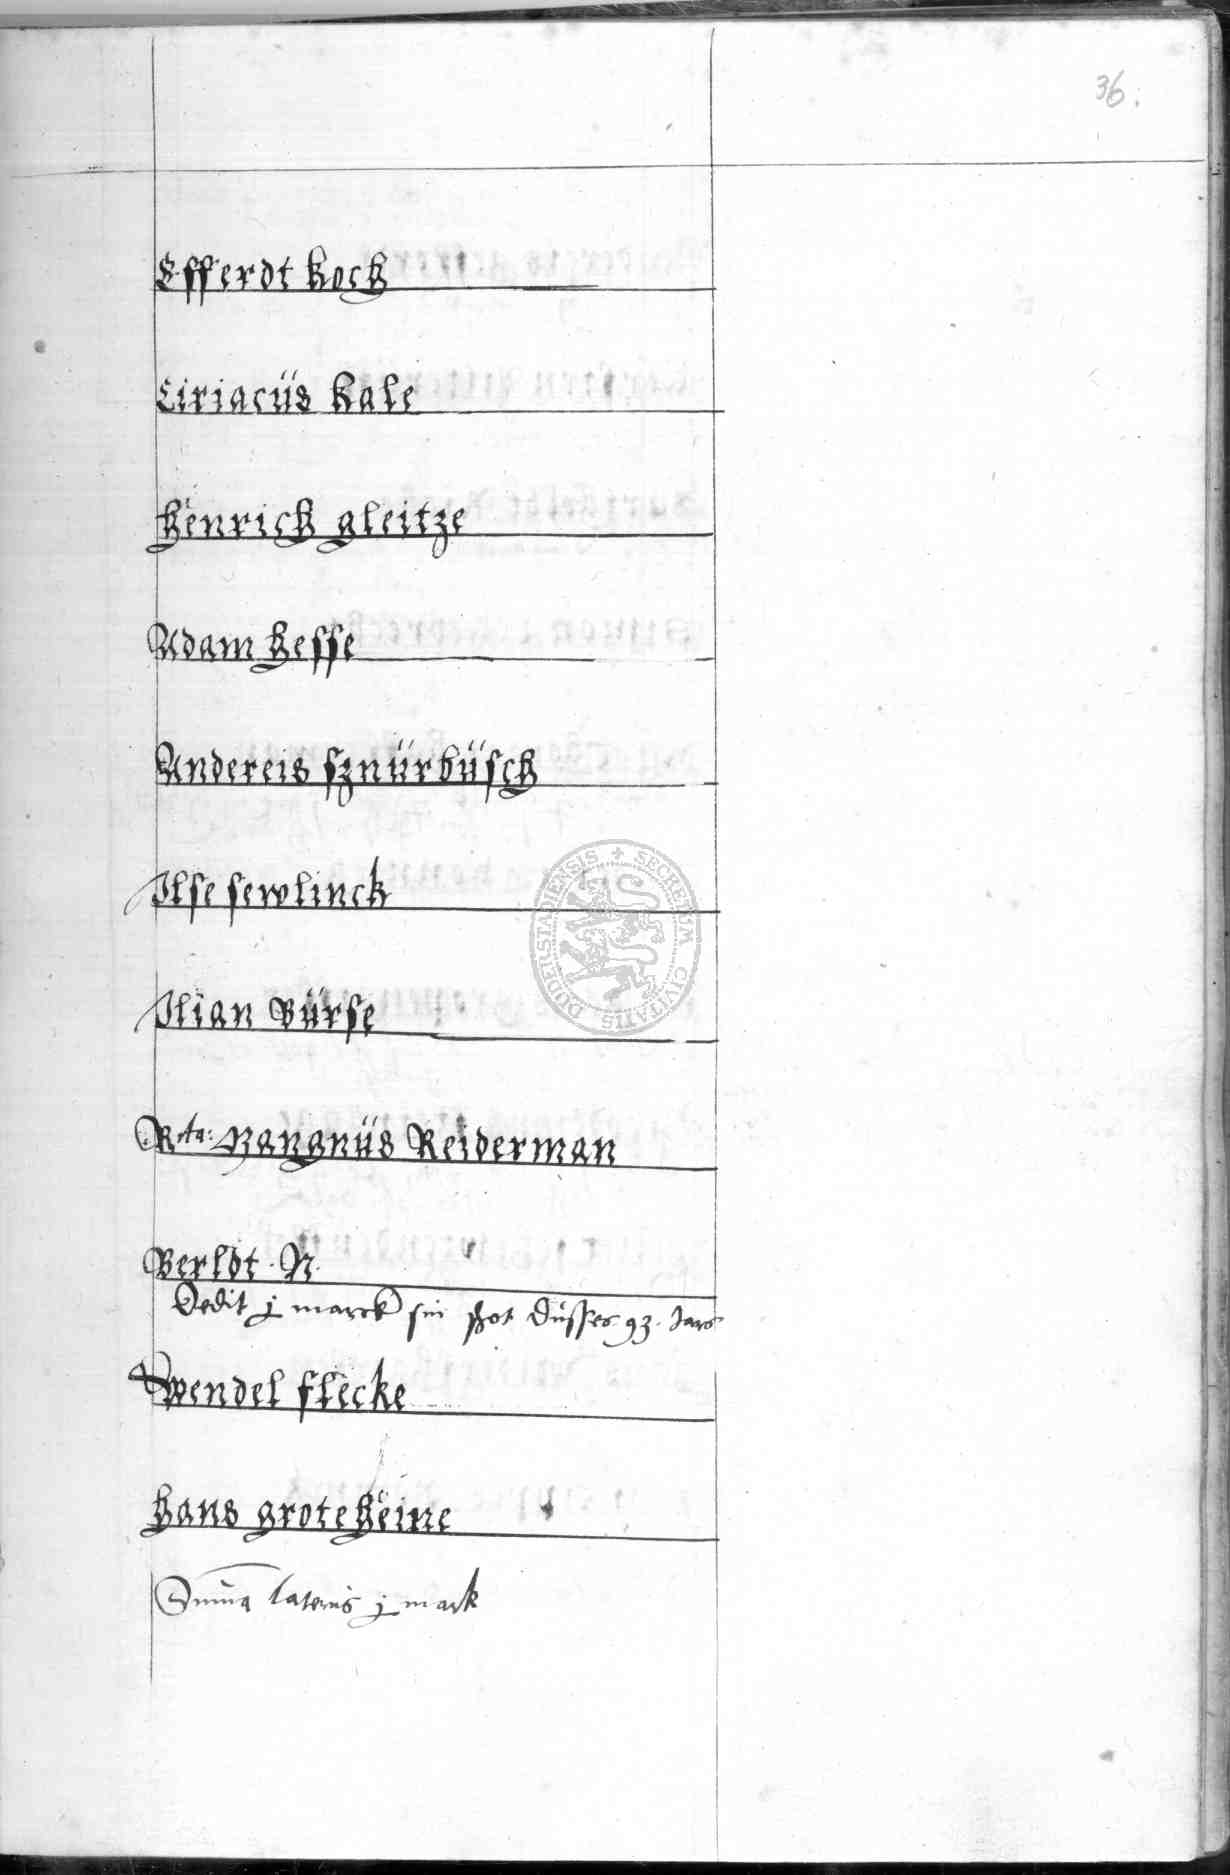 36.
Efferdt Kock
Ciriacüs Kale
Henrick gleitze
Adam Hesse
Andereis sznürbüsch
Ilse sewlinck
Ilian Bürse
Rta: Mangnüs Reiderman
Berldt. N.
Dedit j marck sin schot düsses 93. Jars
Wendel flecke
Hans groteheine
Suma lateris j mark
SECRETUM CIVITATIS DUDERSTADIENSIS